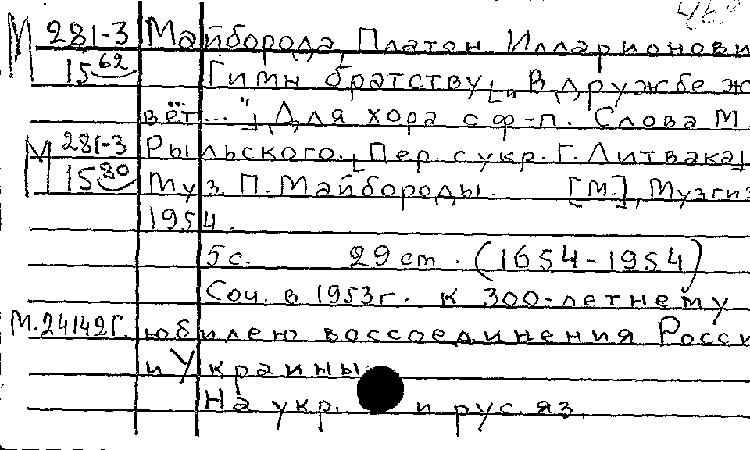 М 281-3 Майборода, Платон Илларионови
15 62 Гимн братству ["В дружбе ж
вёт..."] Для хора с ф-п. Слова М.
М 281-3 Рыльского. [Пер. с укр. Г. Литвака]
15 80 Муз. П. Майбороды. [М.], Музгиз
1954.
5 с. 29 см. (1654-1954)
Соч. в 1953 г. к 300-летнему
М.24142Г. юбилею воссоединения Росси
и Украины.
На укр. и рус. яз.